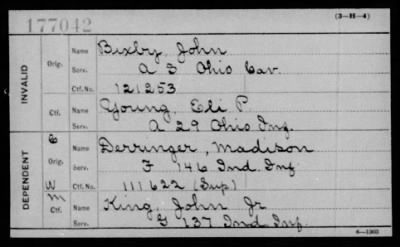 177042
(3-H-4)
INVALID
Orig.
Name Bixby, John
Serv. A 3 Ohio Cav.
Ctf. No. 121253
Ctf.
Name Young, Eli P.
Serv. A 29 Ohio Inf.
DEPENDENT
C
Orig.
Name Derringer, Madison
Serv. F 146 Ind Inf
W
Ctf. No. 111622 (Sup)
M
Ctf.
Name King, John Jr
Serv. G 137 Ind Inf